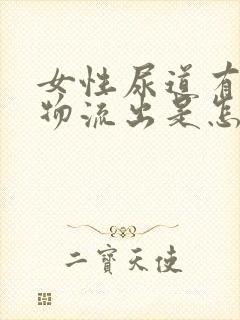 女性尿道有
物流出是怎
二寶天使